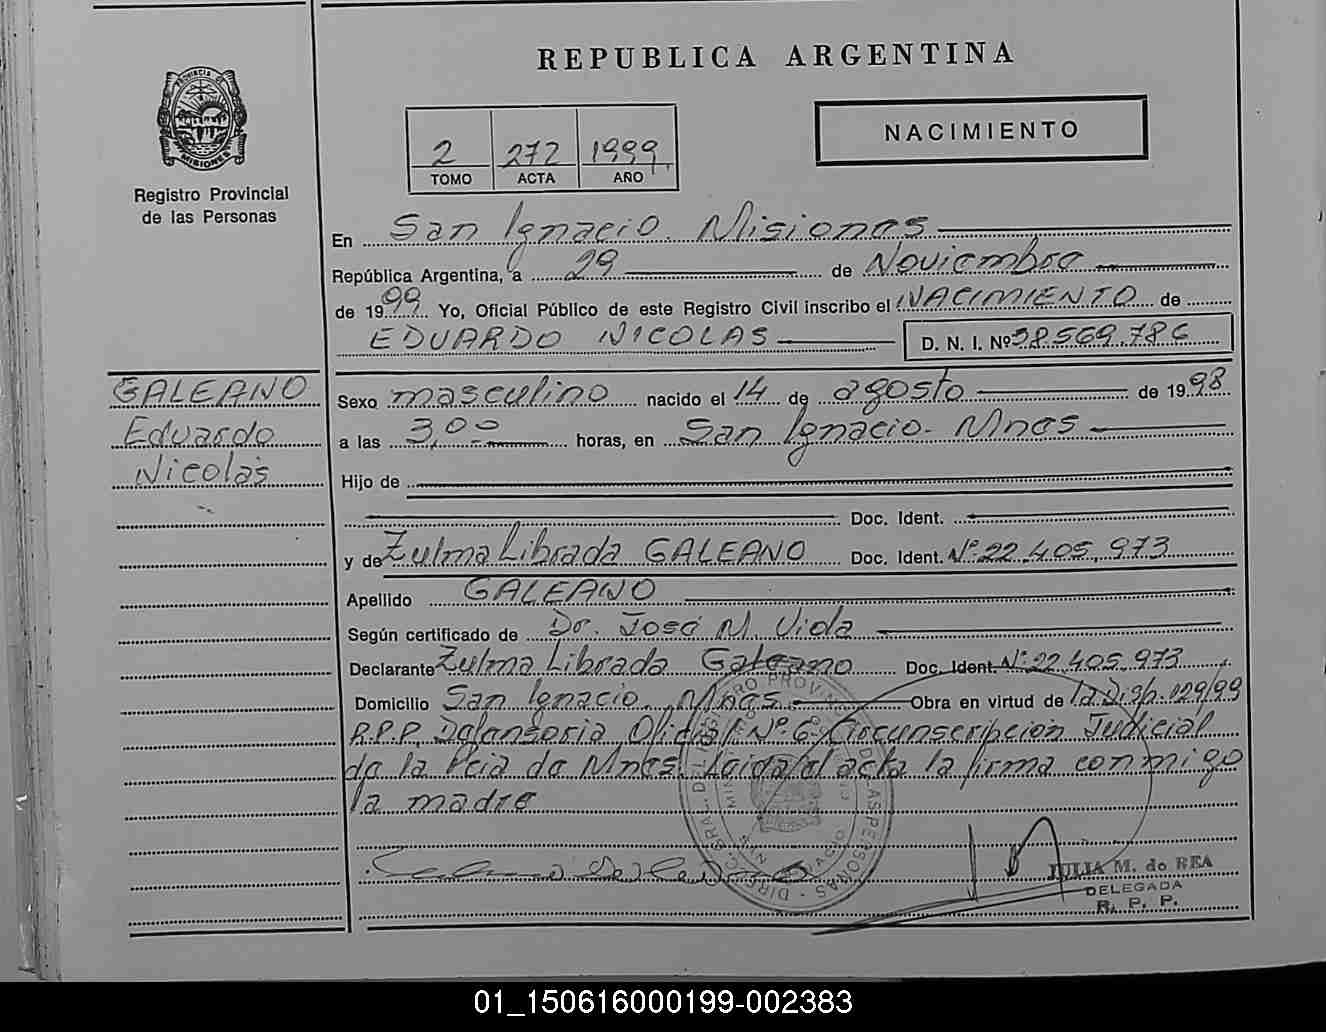 REPUBLICA ARGENTINA
PROVINCIA DE
MISIONES
Registro Provincial
de las Personas
2 272 1999
TOMO ACTA AÑO
NACIMIENTO
En San Ignacio. Misiones
República Argentina, a 29 de Noviembre
de 1999 Yo, Oficial Público de este Registro Civil inscribo el NACIMIENTO de
EDUARDO NICOLAS D. N. I. Nº 38.569.786
GALEANO
Eduardo
Nicolás
Sexo masculino nacido el 14 de agosto de 1998
a las 3,00 horas, en San Ignacio. Mnes
Hijo de
Doc. Ident.
y de Zulma Librada GALEANO Doc. Ident. Nº 22.405.973
Apellido GALEANO
Según certificado de Dr. José M. Viola
Declarante Zulma Librada Galeano Doc. Ident. Nº 22.405.973
Domicilio San Ignacio. Mnes. Obra en virtud de la Disp. 029/99
R.P.P. Defensoria Oficial Nº 6 Circunscripcion Judicial
de la Pcia de Mnes. Leida el acta la firma conmigo
la madre
JULIA M. de REA
DELEGADA
R. P. P.
01_150616000199-002383